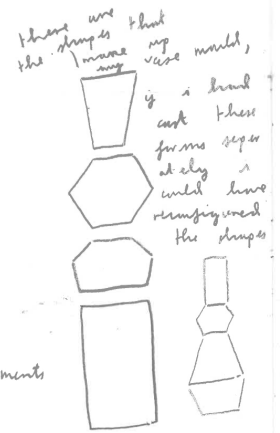 these are
the shapes that
make up
my vase mould,
if i had
cast these
forms seper
ately i
could have
reconfigured
the shapes
ments